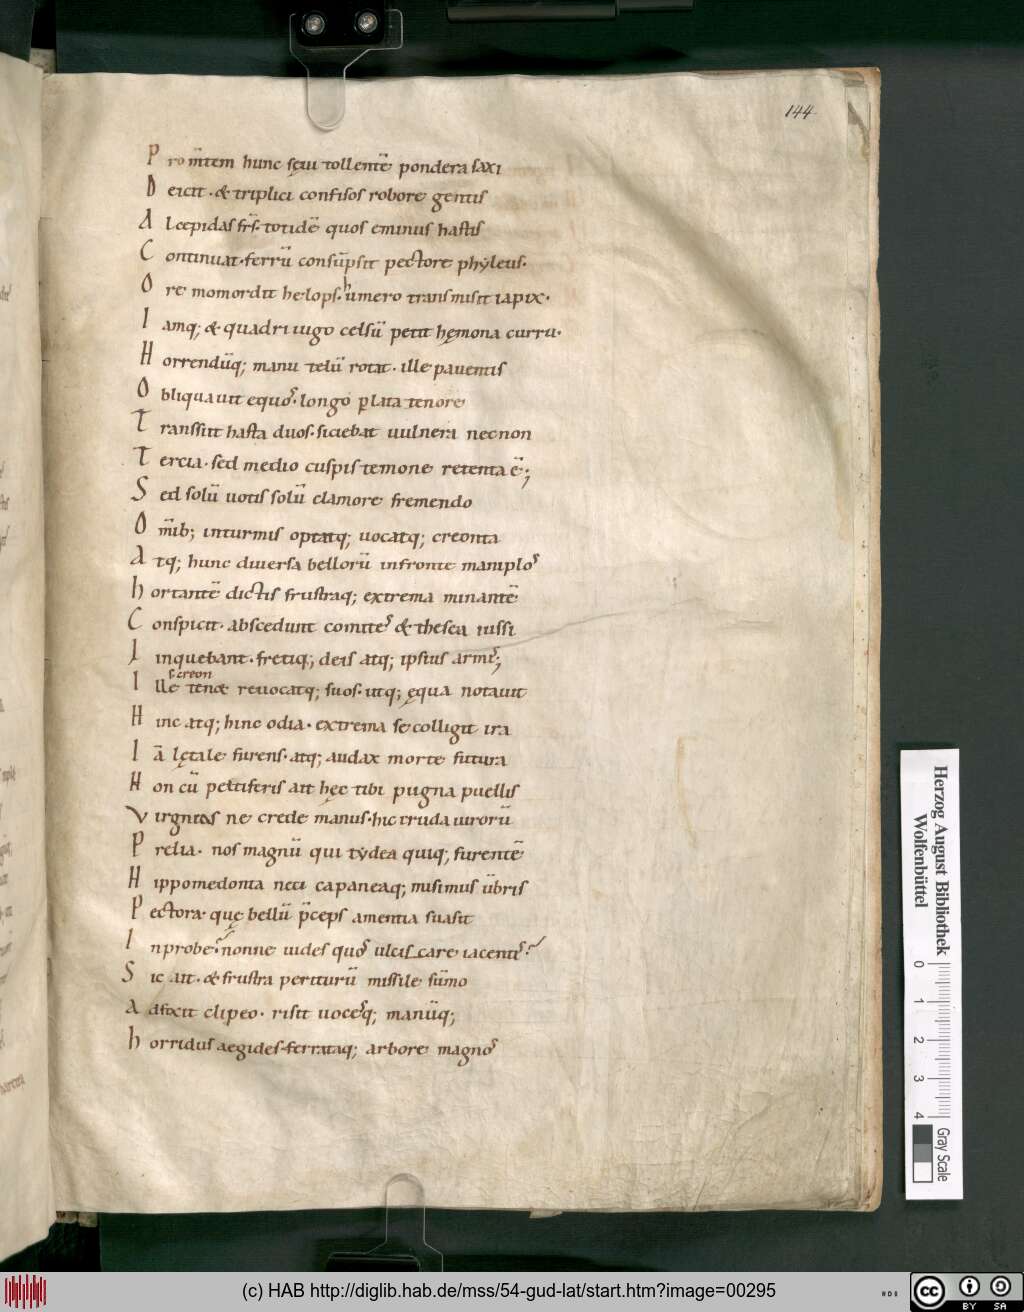 144
P ro m̄tem hunc sęui tollentē pondera saxi
D eicit · & triplici confisos robore gentis
A lcepidas fr̄s · totidē quos eminus hastis
C ontinuat · ferrū consūpsit pectore phẏleus ·
O re momordit helops · humero transmisit iapix ·
I amq; & quadriiugo celsū petit hęmona curru ·
H orrendūq; manu telū rotat · ille pauentis
O bliquauit equos · longo p̱lata tenore
T ranssiit hasta duos · siciebat uulnera necnon
T ercia · sed medio cuspis temone retenta ē;
S ed solū uotis solū clamore fremendo
O m̄ib; inturmis optatq; uocatq; creonta
A tq; hunc diuersa bellorū infronte maniplos
h ortantē dictis frustraq; extrema minantē
C onspicit · abscedunt comites & thesea iussi
L inquebant · fretiq; deis atq; ipsius armis;
s· creon
I lle tenæ reuocatq; suos · utq; ęqua notauit
H inc atq; hinc odia · extrema se colligit ira
I ā lętale furens · atq; audax morte futura
N on cū peltiferis ait hęc tibi pugna puellis
V irgnitas ne crede manus · hic cruda uirorū
P relia · nos magnū qui tẏdea quiq; furentē
H ippomedonta neci capaneaq; misimus ūbris
P ectora · quę bellū p̄ceps amentia suasit
I nprobe · nonne uides quos ulciscare iacentes ·
S ic ait · & frustra periturū missile sūmo
A dfixit clipeo · risit uocesq; manūq;
h orridus aegides · ferrataq; arbore magnos
Herzog August Bibliothek
Wolfenbüttel
0 1 2 3 4
Gray Scale
(c) HAB http://diglib.hab.de/mss/54-gud-lat/start.htm?image=00295
cc BY SA